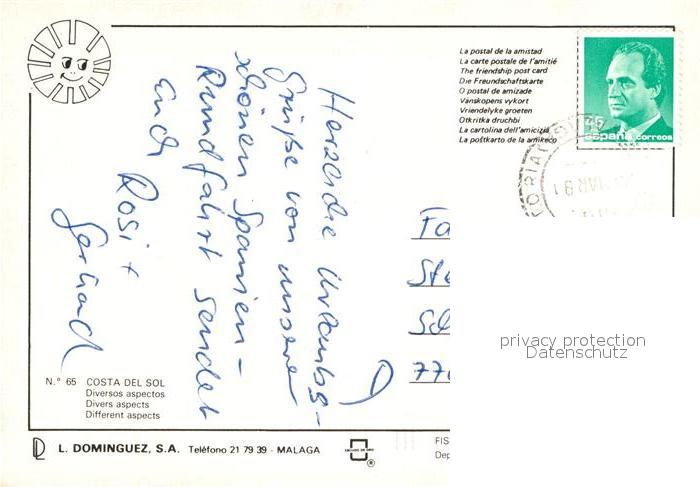 La postal de la amistad
La carte postale de l'amitié
The friendship post card
Die Freundschaftskarte
O postal de amizade
Vanskopens vykort
Vriendelyke groeten
Otkritka druchbi
La cartolina dell'amicizia
La poŝtkarto de la amikeco
45
españa correos
MAR 91
Herzliche Urlaubs-
Grüße von unserer
schönen Spanien-
Rundfahrt sendet
Euch Rosi +
Gerhard
Fa
Sta
Sch
770
privacy protection
Datenschutz
N.° 65 COSTA DEL SOL
Diversos aspectos
Divers aspects
Different aspects
L. DOMINGUEZ, S.A. Teléfono 21 79 39 - MALAGA
FIS
Dep